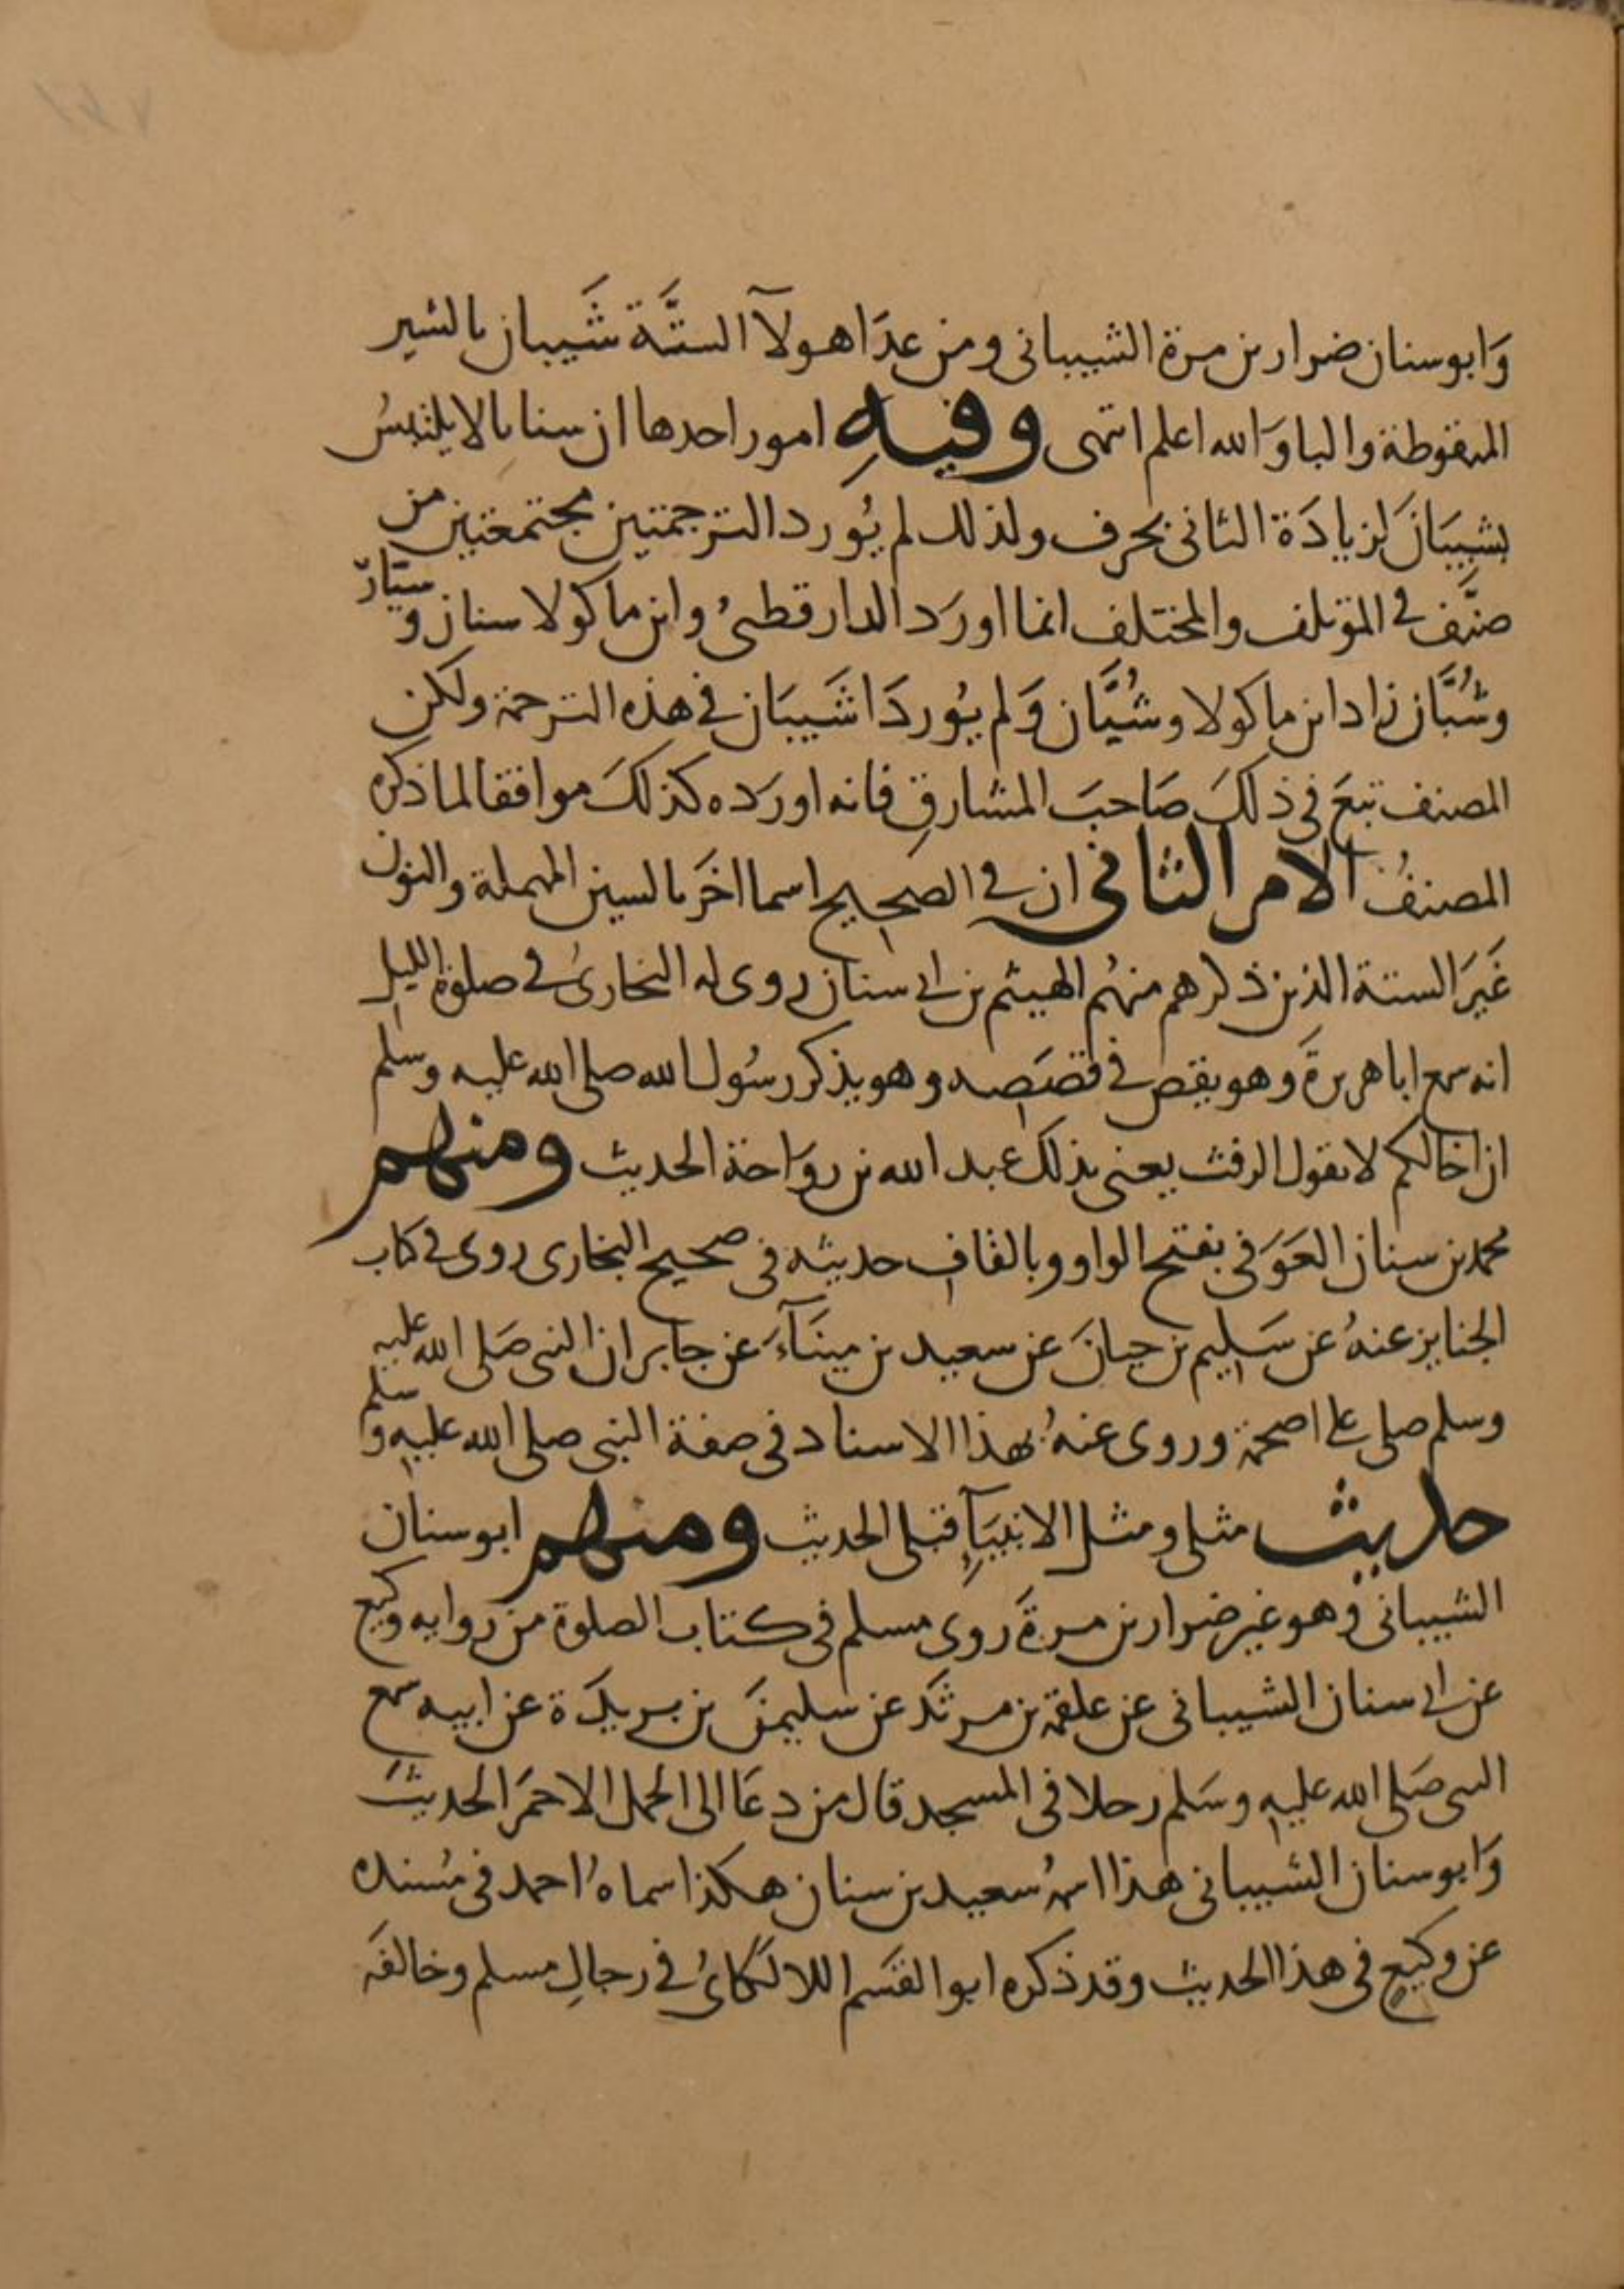 وَابوسنان ضرار بن مرة الشيبانى ومن عدَا هولآ الستَّة شَيبان بالشين
المنقوطة والبا وَالله اعلم انتهى وفيهِ امور احدها ان سنانا لا يلتبسُ
بشيبَانَ لزيادَة الثانى بحرف ولذلك لم يُورد الترجمتين مجتمعتين من
صنَّف فى المؤتلف والمختلف انما اورَد الدارقطنىُ وابن ماكولا سنان و سَيَّار
وشُبَّان زاد ابن ماكولا وشُيَّان وَلم يُوردَا شَيبَان فى هذه الترجمة ولكن
المصنف تبعَ فى ذلكَ صَاحبَ المشارقِ فانه اورَده كذلكَ موافقا لما ذكره
المصنفُ الامر الثانى ان فى الصحيح اسما اخَر بالسين المهملة والنون
غَيَر الستة الذين ذكرهم منهُم الهيثم بن ابى سنان روى له البخارىُ فى صلوة الليل
انه سمع ابا هريرةَ وهو يقص فى قصَصه وهو يذكر رسُول الله صلى الله عليه وسلم
ان اخالكم لا يقول الرفث يعنى بذلك عبد الله بن روَاحة الحديث ومنهم
محمد بن سنان العَوَقى بفتح الواو وبالقاف حديثه فى صحيح البخارى روى فى كتاب
الجنايز عنهُ عن سَليم بن حيانَ عن سعيد بن مينَآءَ عن جابر ان النبى صَلى الله عليه
وسلم صلى على اصحمة وروى عنهُ بهذا الاسناد فى صفة النبى صلى الله عليه وسلم
حديث مثلى ومثل الانبيَآءِ قبلى الحديث ومنهم ابوسنان
الشيبانى وهو غير ضرار بن مرةَ روى مسلم فى كتاب الصلوة من روايه وكيع
عن ابى سنان الشيبانى عن علقمة بن مرثَد عن سليمنَ بن بريدَة عن ابيه سمع
النبى صَلى الله عليه وسَلم رجلا فى المسجد قال من دعَا الى الجمل الاحمَر الحديثَ
وَابوسنان الشيبانى هذا اسمهُ سعيد بن سنان هكذا سماهُ احمد فى مُسنده
عن وكيعٍ فى هذا الحديث وقد ذكره ابوالقسَم اللالكَاىُ فى رجالِ مسلم وخالفَه